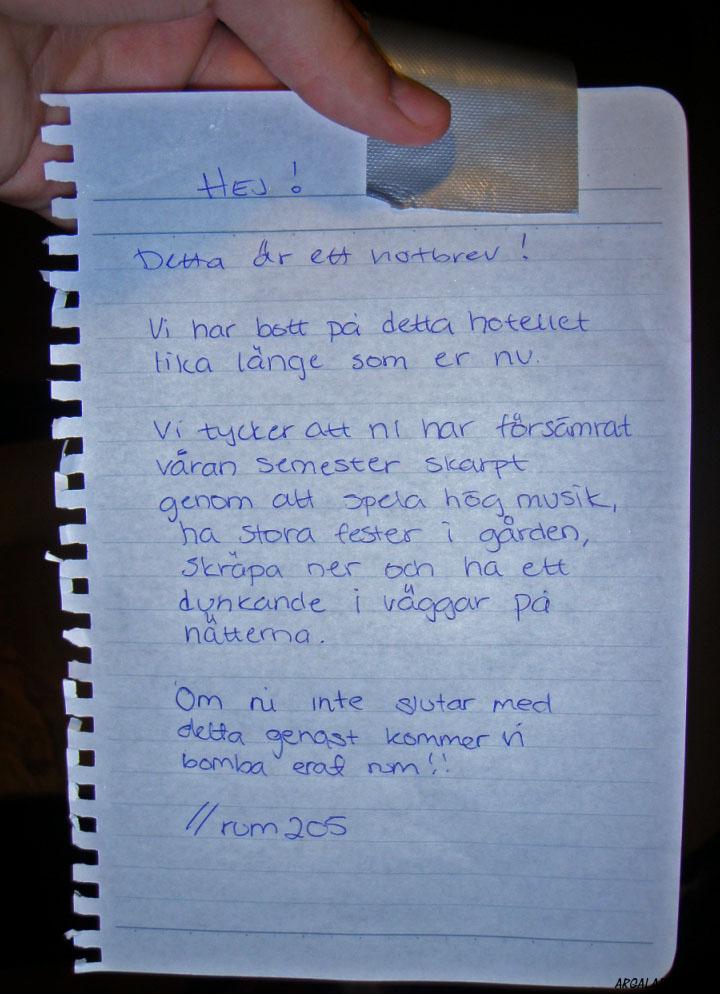 HEJ!
Detta är ett hotbrev!
Vi har bott på detta hotellet
lika länge som er nu.
Vi tycker att ni har försämrat
våran semester skarpt
genom att spela hög musik,
ha stora fester i gården,
skräpa ner och ha ett
dunkande i väggar på
nätterna.
Om ni inte slutar med
detta genast kommer vi
bomba erat rum!!
//rum 205